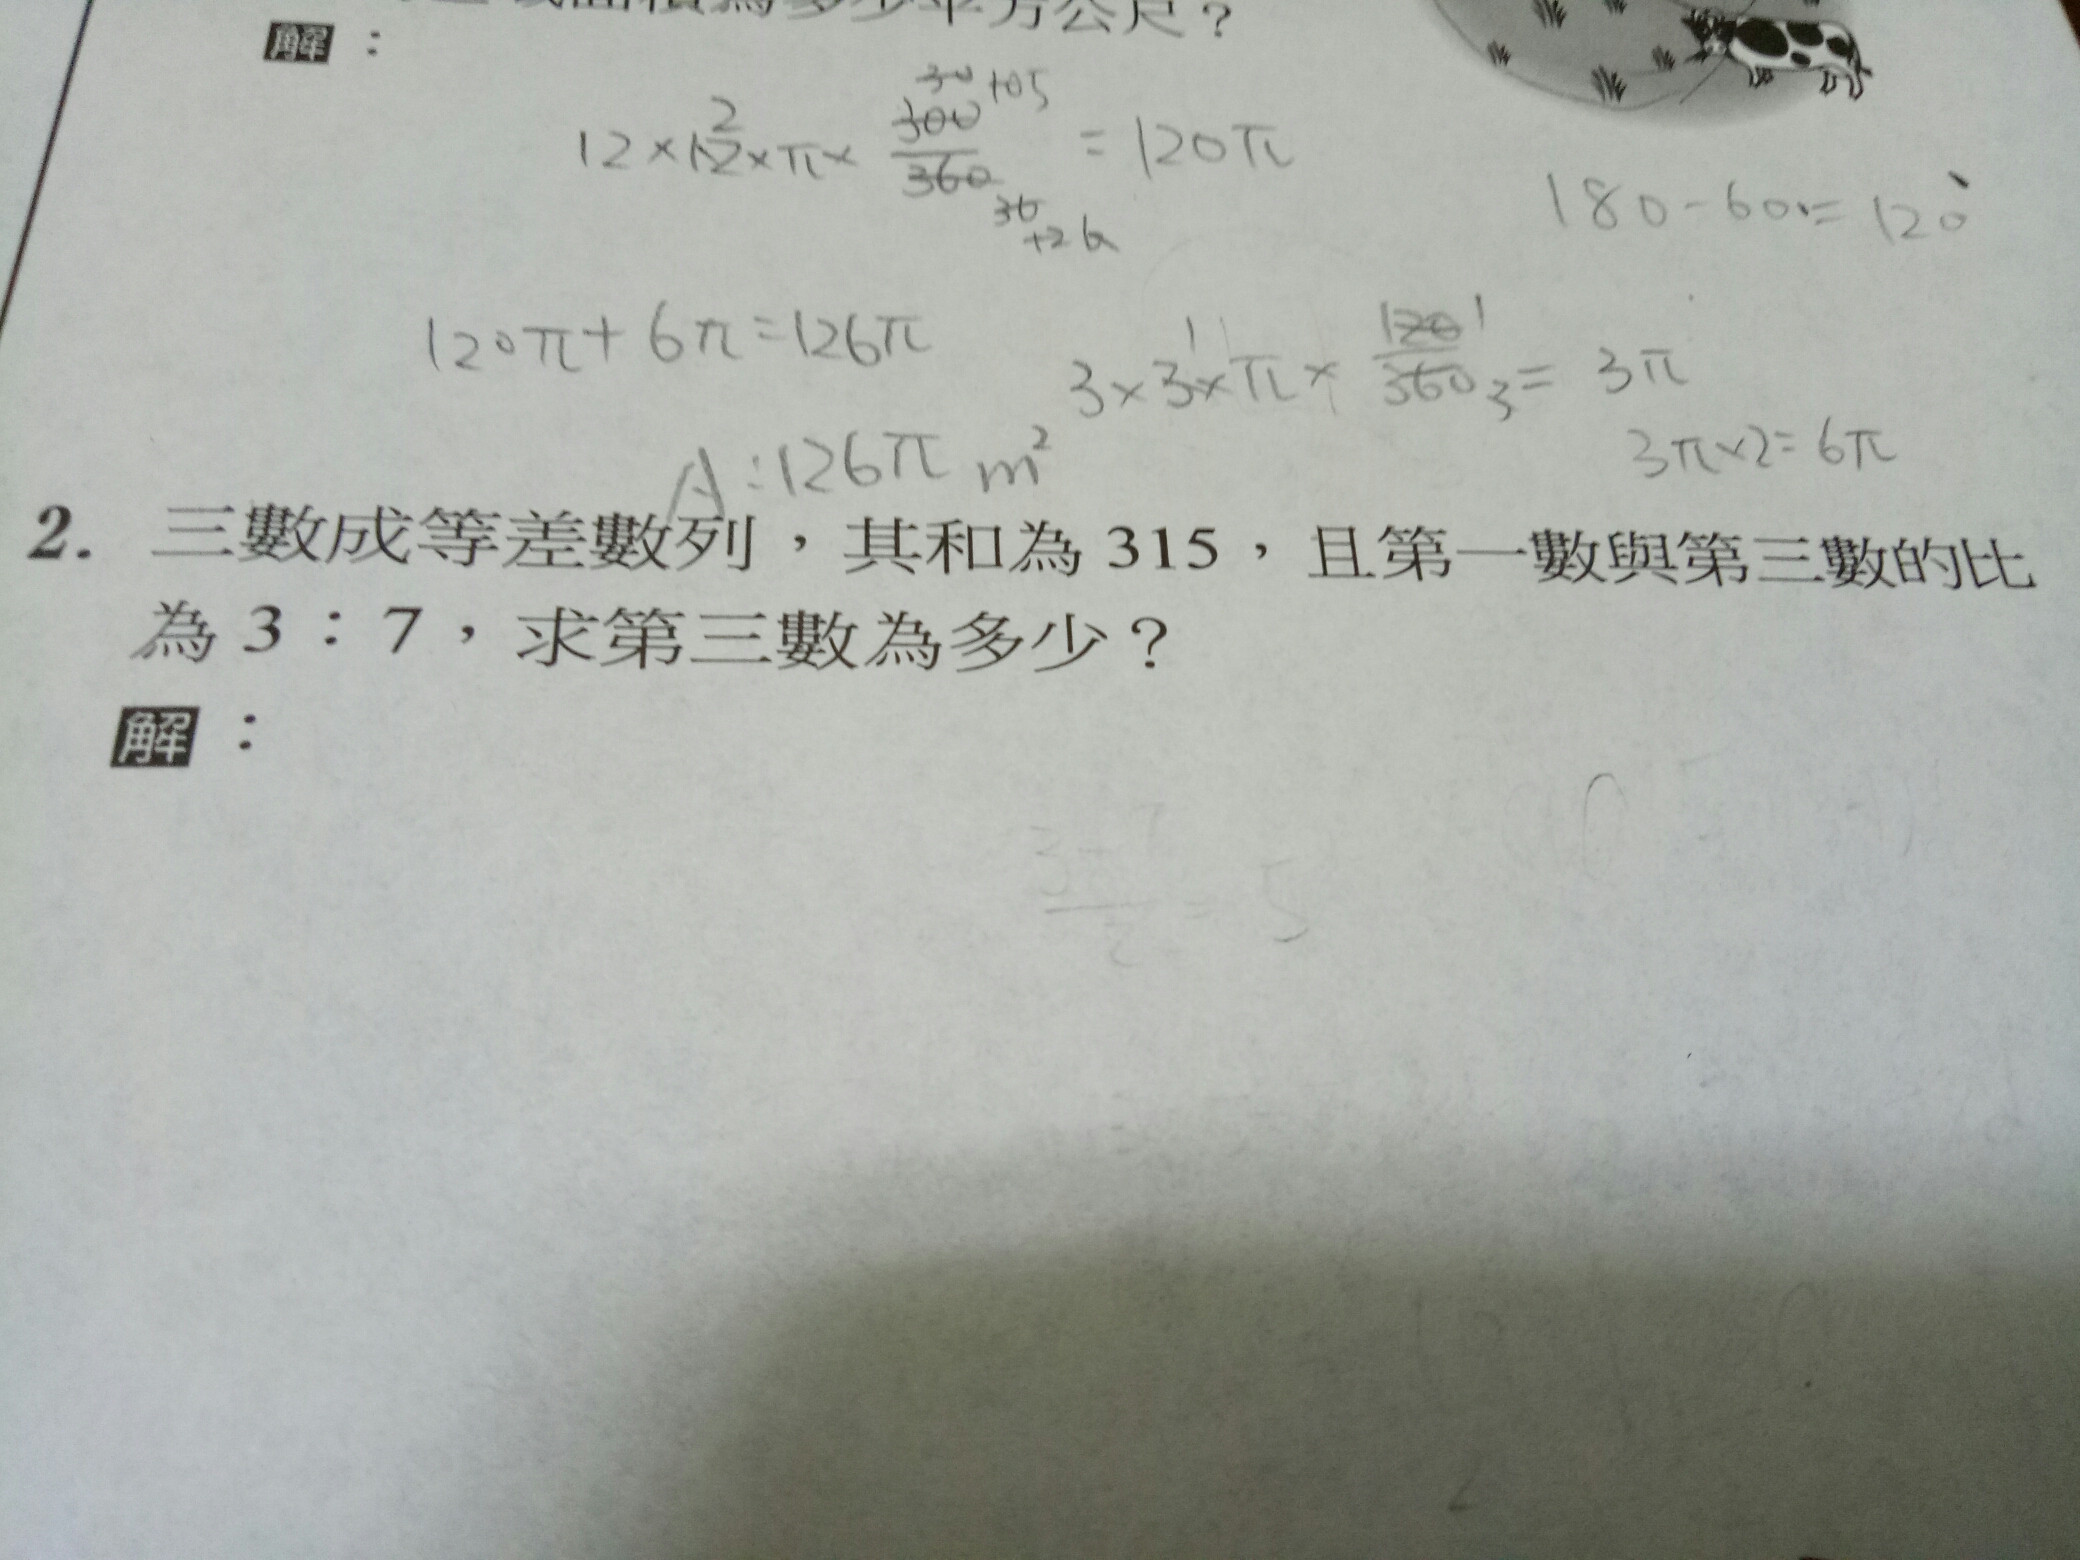 面積為多少平方公尺？
解：
12×12×π×300/360=120π
2
30 105
36 126
180-60=120°
120π+6π=126π
3×3×π×120/360=3π
1 1 3
3π×2=6π
A:126π m²
2. 三數成等差數列，其和為315，且第一數與第三數的比
為3：7，求第三數為多少？
解：
3+7/2=5